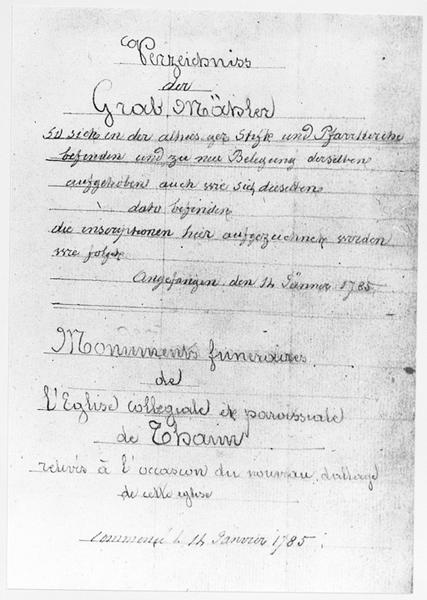 Verzeichniss
der
Grab Mähler
so sich in der alhiesiger Stifts und Pfarrkirche
befinden und zu neu Belegung derselben
aufgehoben auch wie sich dieselben
dato befinden
die inscriptionen hier aufgezeichnet worden
wie folgt
Angefangen den 14 Jänner 1785
Monuments funeraires
de
l'Eglise collegiale et paroissiale
de Thann
relevés à l'occasion du nouveau dallage
de cette eglise
commencé le 14 Janvier 1785.